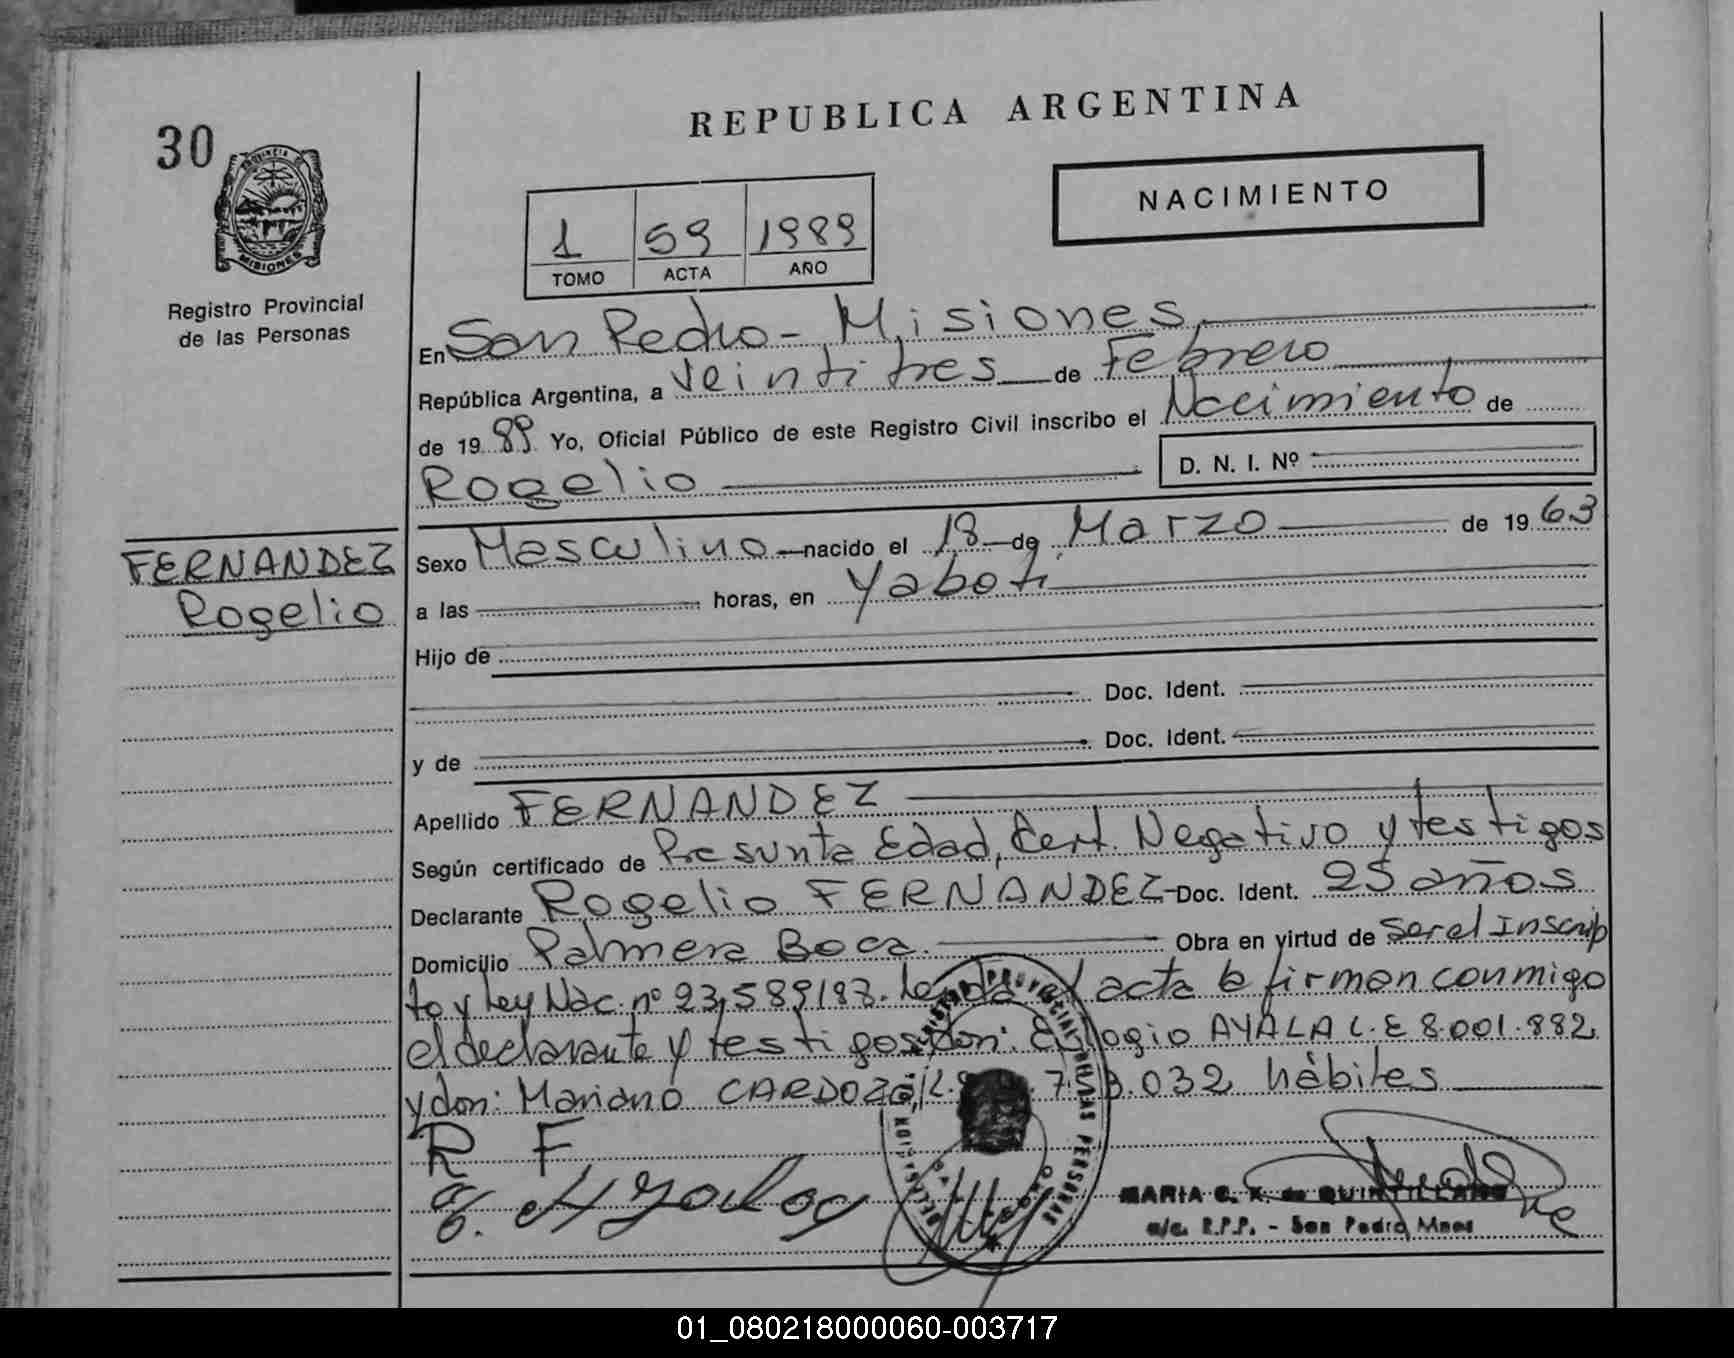 30
PROVINCIA DE
MISIONES
Registro Provincial
de las Personas
REPUBLICA ARGENTINA
NACIMIENTO
1 59 1989
TOMO ACTA AÑO
En San Pedro - Misiones,
República Argentina, a veintitres de Febrero
de 19 89 Yo, Oficial Público de este Registro Civil inscribo el Nacimiento de
Rogelio D. N. I. Nº
FERNANDEZ
Rogelio
Sexo Masculino nacido el 18 de Marzo de 19 63
a las horas, en Yaboti
Hijo de
Doc. Ident.
y de Doc. Ident.
Apellido FERNANDEZ
Según certificado de Presunta Edad, Cert. Negativo y testigos
Declarante Rogelio FERNANDEZ Doc. Ident. 25 años
Domicilio Palmera Boca Obra en virtud de Ser el Inscrip
to y Ley Nac. nº 23,589/88. Leida el acta la firman conmigo
el declarante y testigos don: Eulogio AYALA L.E 8.001.882
y don: Mariano CARDOZO, 7. 3.032 hábiles
R F
E. Ayala
MARIA G. K. de QUINTILLANO
a/c. R.P.P. - San Pedro, Mnes
01_080218000060-003717